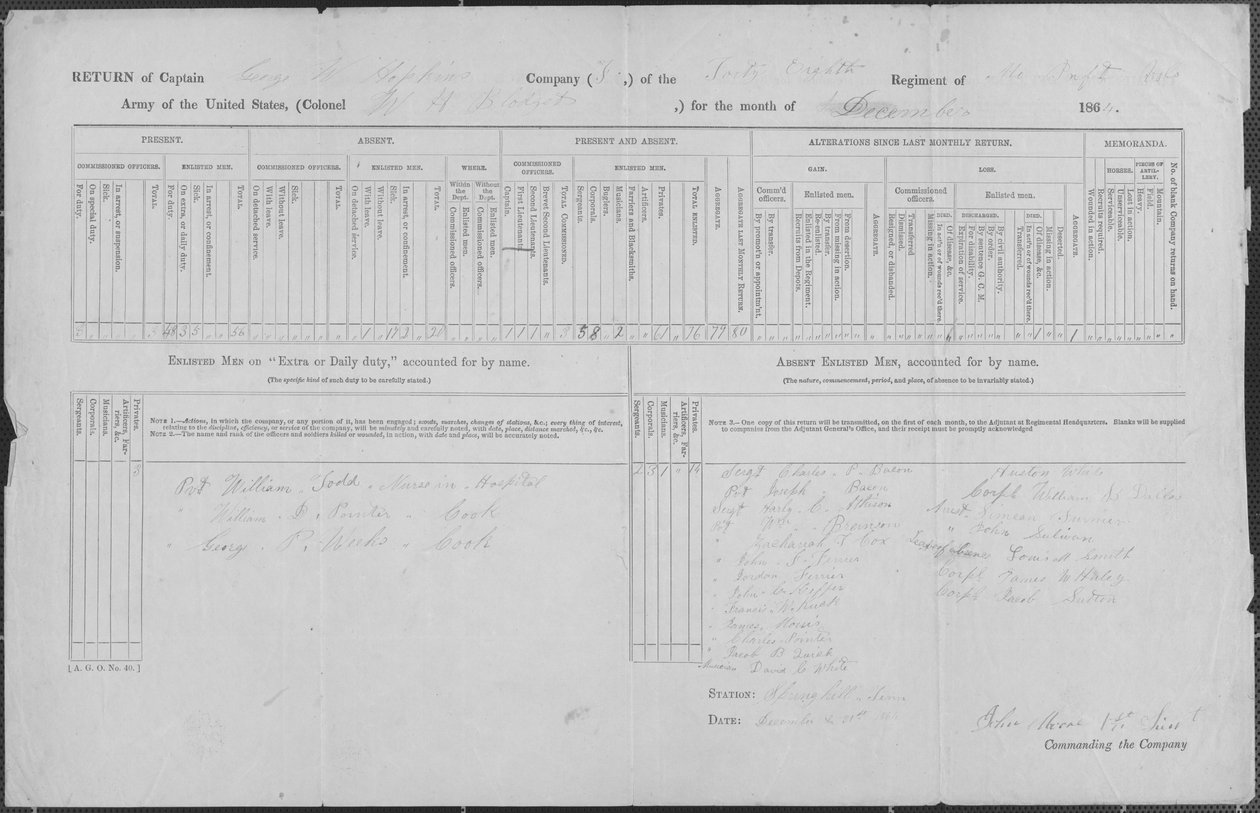 RETURN of Captain George W Hopkins Company ( ,) of the Forty Eighth Regiment of Mo Inft Vols
Army of the United States, (Colonel W H Blodget ,) for the month of December 1864.
PRESENT. ABSENT. PRESENT AND ABSENT. ALTERATIONS SINCE LAST MONTHLY RETURN. MEMORANDA.
COMMISSIONED OFFICERS. ENLISTED MEN. COMMISSIONED OFFICERS. ENLISTED MEN. WHERE. COMMISSIONED OFFICERS. ENLISTED MEN. GAIN. LOSS. HORSES. PIECES OF ARTILLERY.
Within the Dept. Without the Dept. Comm'd officers. Enlisted men. Commissioned officers. Enlisted men.
DIED. DISCHARGED. DIED.
For duty. On special duty. Sick. In arrest, or suspension. TOTAL. For duty. On extra, or daily duty. Sick. In arrest, or confinement. TOTAL. On detached service. With leave. Without leave. Sick. TOTAL. On detached service. With leave. Without leave. Sick. In arrest, or confinement. TOTAL. Commissioned officers. Enlisted men. Commissioned officers. Enlisted men. Captain. First Lieutenant. Second Lieutenants. Brevet Second Lieutenants. TOTAL COMMISSIONED. Sergeants. Corporals. Buglers. Musicians. Farriers and Blacksmiths. Artificers. Privates. TOTAL ENLISTED. AGGREGATE. AGGREGATE LAST MONTHLY RETURN. By promot'n or appointm'nt. By transfer. Recruits from Depots. Enlisted in the Regiment. Re-enlisted. By transfer. From missing in action. From desertion. AGGREGATE. Resigned, or disbanded. Dismissed. Transferred Missing in action. In act'n or of wounds rec'd there. Of disease, &c. Expiration of service. For disability. By sentence G. C. M. By order. By civil authority. Transferred. In act'n or of wounds rec'd there. Of disease, &c. Missing in action. Deserted. AGGREGATE. Wounded in action. Recruits required. Serviceable. Unserviceable. Lost in action. Heavy. Field. Mountain. No. of blank Company returns on hand.
3 " " " 3 48 3 5 " 56 " " " " " " 1 " 17 2 " 20 " " " " 1 1 1 " 3 5 8 " 2 " " 61 " 76 79 80 " " " " " " " " " " " " " " " " " " " " " " 1 " " 1 " " " " " " " " "
ENLISTED MEN ON "Extra or Daily duty," accounted for by name.
(The specific kind of such duty to be carefully stated.)
Sergeants. Corporals. Musicians. Artificers, Farriers, &c. Privates.
NOTE 1.—Actions, in which the company, or any portion of it, has been engaged; scouts, marches, changes of stations, &c.; every thing of interest,
relating to the discipline, efficiency, or service of the company, will be minutely and carefully noted, with date, place, distance marched, &c., &c.
NOTE 2.—The name and rank of the officers and soldiers killed or wounded, in action, with date and place, will be accurately noted.
3
Pvt William Todd " Nurse in Hospital
" William D. Pointer " Cook
" George P. Weeks " Cook
[A. G. O. No. 40.]
ABSENT ENLISTED MEN, accounted for by name.
(The nature, commencement, period, and place, of absence to be invariably stated.)
Sergeants. Corporals. Musicians. Artificers, Farriers, &c. Privates.
NOTE 3.—One copy of this return will be transmitted, on the first of each month, to the Adjutant at Regimental Headquarters. Blanks will be supplied
to companies from the Adjutant General's Office, and their receipt must be promptly acknowledged
2 3 1 " 14
Sergt Charles P. Bacon
Pvt Joseph Bacon
Sergt C. Atkison
Pvt Wm Bronson
" Zachariah T Cox
" John S Ferrier
" Jordan Ferrier
" John C
" Francis W.
" James
" Charles Pointer
" Jacob B
Musician David C White
Auston White
Corpl William
Arrest Simeon
" John Sulivan
Leave of Louis M Smith
Corpl James W Haley
Corpl Jacob Sutton
STATION: Springhill Tenn
DATE: December 31st 1864
John Moore 1st Lieut
Commanding the Company